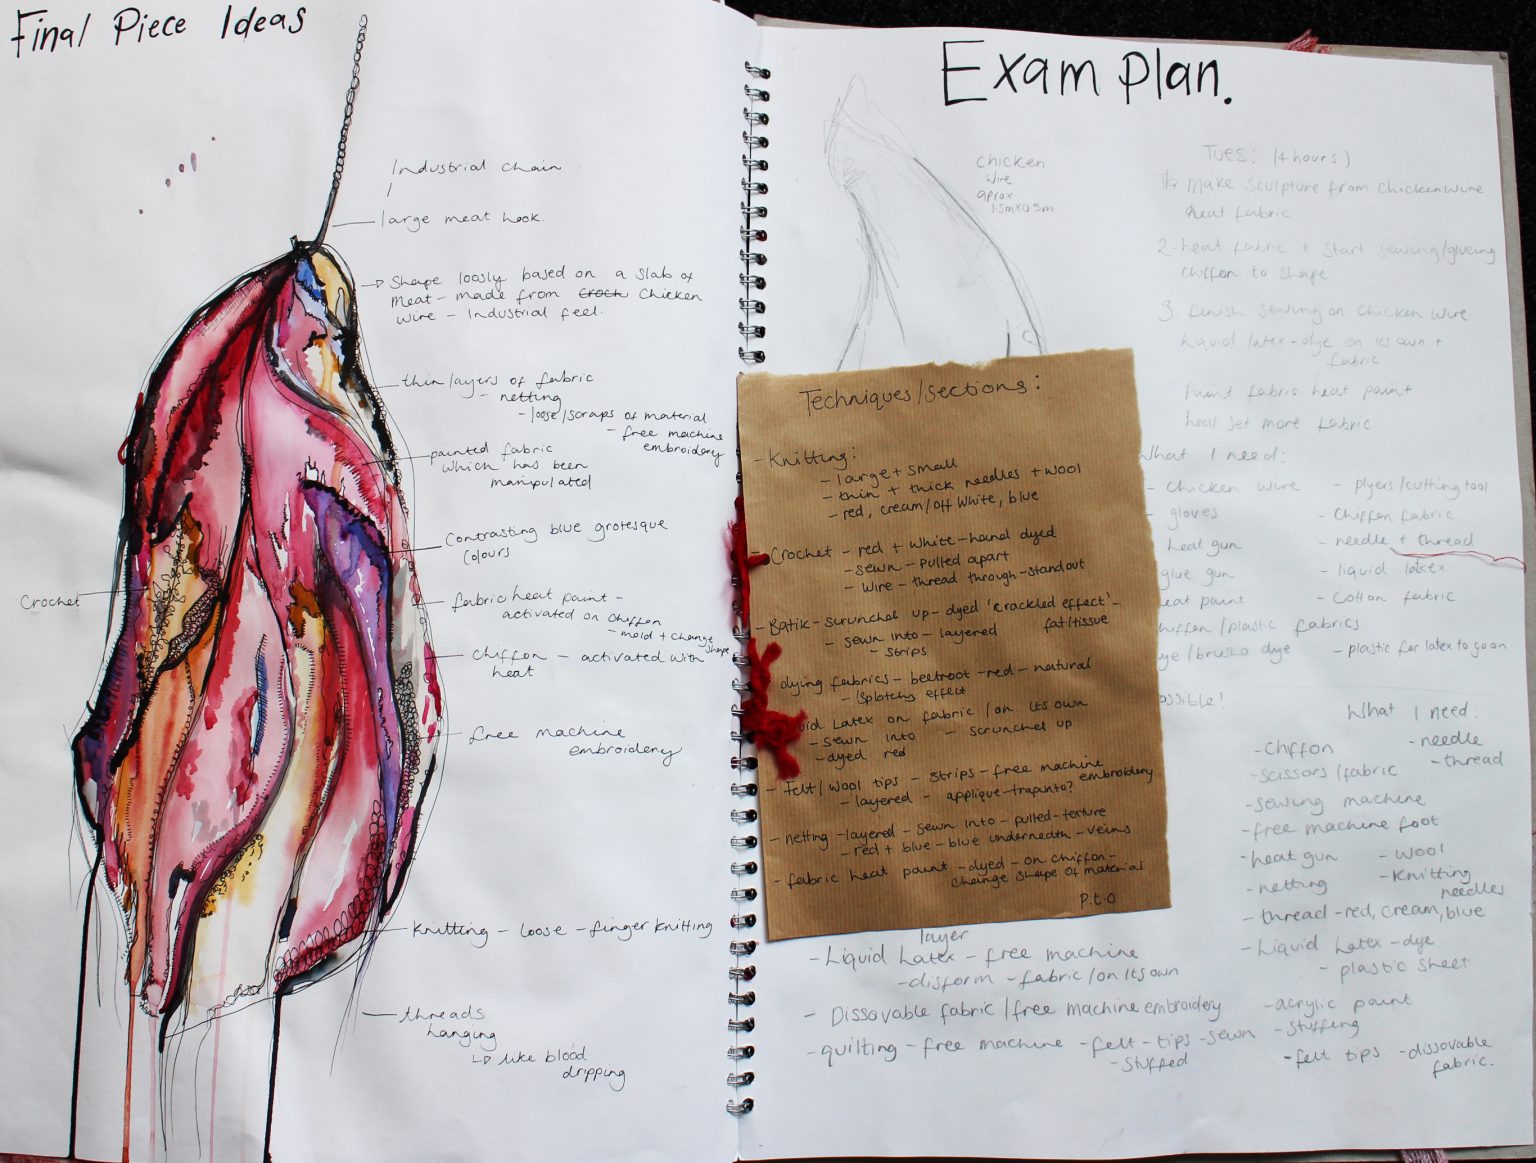 Final Piece Ideas
Industrial chain
large meat hook.
Shape loosly based on a slab of
meat - made from croch chicken
wire - Industrial feel.
thin layers of fabric
- netting
- loose/scraps of material
- free machine
embroidery
painted fabric
which has been
manipulated
Contrasting blue grotesque
colours
Crochet
fabric heat paint -
activated on chiffon
- mold + change
shape
chiffon - activated with
heat
free machine
embroidery
Knitting - loose - finger knitting
threads
hanging
like blood
dripping
Exam Plan.
chicken
wire
aprox
Tues: (4 hours)
Make sculpture from chickenwire
heat fabric
2. heat fabric + start sewing/glueing
chiffon to shape
3. finish sewing on chicken wire
Liquid latex - dye on its own +
fabric
Paint fabric heat paint
set more fabric
What I need:
- chicken wire
- plyers/cutting tool
- gloves
- chiffon fabric
heat gun
- needle + thread
glue gun
- liquid latex
heat paint
- cotton fabric
chiffon/plastic fabrics
dye/brusho dye
- plastic for latex to go on
ossible!
Techniques/sections:
- Knitting:
- large + small
- thin + thick needles + wool
- red, cream/off white, blue
- Crochet - red + white - hand dyed
- sewn - pulled apart
- wire - thread through - standout
- Batik - scrunchel up - dyed 'crackled effect' -
fat/tissue
- sewn into - layered
- strips
dying fabrics - beetroot - red - natural
- splotchy effect
uid Latex on fabric/on its own
- sewn into - scrunchel up
- dyed red
- felt/wool tips - strips - free machine
embroidery
- layered - applique - trapunto?
- netting - layered - sewn into - pulled - texture
- red + blue - blue underneath - veins
- fabric heat paint - dyed - on chiffon -
change shape of material
P.t.o
What I need:
- chiffon
- needle
- scissors/fabric
- thread
- sewing machine
- free machine foot
- heat gun
- wool
- netting
- knitting
needles
- thread - red, cream, blue
- Liquid Latex - dye
- plastic sheet
layer
- Liquid Latex - free machine
- disform - fabric/on its own
- Dissovable fabric/free machine embroidery
- acrylic paint
- quilting - free machine - felt - tips - sewn
- stuffed
- stuffing
- felt tips
- dissovable
fabric.